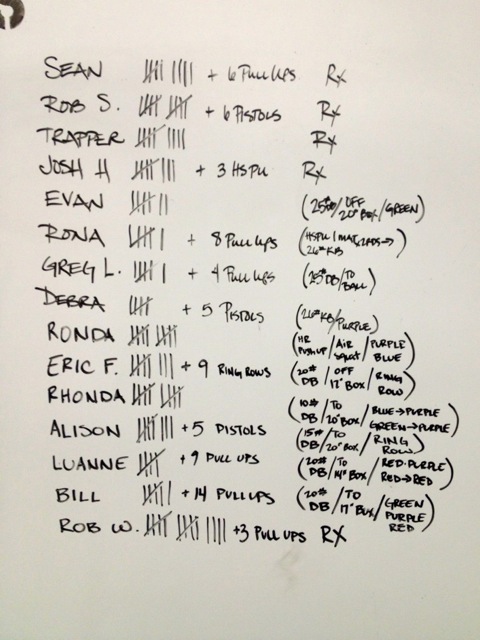 SEAN 𝍸 |||| + 6 PULL UPS Rx
ROB S. 𝍸 𝍸 + 6 PISTOLS Rx
TRAPPER 𝍸 |||| Rx
JOSH H 𝍸 ||| + 3 HSPU Rx
EVAN 𝍸 || (25#DB/OFF 20" BOX/GREEN)
RONA 𝍸 | + 8 PULL UPS (HSPU 1 MAT, 2ADS→ 26# KB)
GREG L. 𝍸 | + 4 PULL UPS (25# DB/TO BALL)
DEBRA 𝍸 + 5 PISTOLS (26# KB/PURPLE)
RONDA 𝍸 𝍸 (HR PUSHUP/AIR SQUAT/PURPLE BLUE)
ERIC F. 𝍸 ||| + 9 RING ROWS (20# DB/OFF 17" BOX/RING ROW)
RHONDA 𝍸 𝍸 (10# DB/TO 20" BOX/BLUE→PURPLE GREEN→PURPLE)
ALISON 𝍸 ||| + 5 PISTOLS (15# DB/TO 20" BOX/RING ROW)
LUANNE 𝍸 + 9 PULL UPS (20# DB/TO 14" BOX/RED·PURPLE RED→RED)
BILL 𝍸 | + 14 PULLUPS (20# DB/TO 17" BOX/GREEN PURPLE RED)
ROB W. 𝍸 𝍸 |||| +3 PULL UPS RX